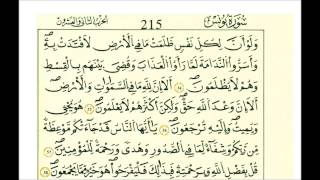 الحزب الثاني والعشرين 215 سورة يونس
وَلَوْ أَنَّ لِكُلِّ نَفْسٍ ظَلَمَتْ مَا فِي الْأَرْضِ لَافْتَدَتْ بِهِ
وَأَسَرُّوا النَّدَامَةَ لَمَّا رَأَوُا الْعَذَابَ وَقُضِيَ بَيْنَهُم بِالْقِسْطِ
وَهُمْ لَا يُظْلَمُونَ أَلَا إِنَّ لِلَّهِ مَا فِي السَّمَاوَاتِ وَالْأَرْضِ
أَلَا إِنَّ وَعْدَ اللَّهِ حَقٌّ وَلَٰكِنَّ أَكْثَرَهُمْ لَا يَعْلَمُونَ هُوَ يُحْيِي
وَيُمِيتُ وَإِلَيْهِ تُرْجَعُونَ يَا أَيُّهَا النَّاسُ قَدْ جَاءَتْكُم مَّوْعِظَةٌ
مِّن رَّبِّكُمْ وَشِفَاءٌ لِّمَا فِي الصُّدُورِ وَهُدًى وَرَحْمَةٌ لِّلْمُؤْمِنِينَ
قُلْ بِفَضْلِ اللَّهِ وَبِرَحْمَتِهِ فَبِذَٰلِكَ فَلْيَفْرَحُوا هُوَ خَيْرٌ مِّمَّا يَجْمَعُونَ